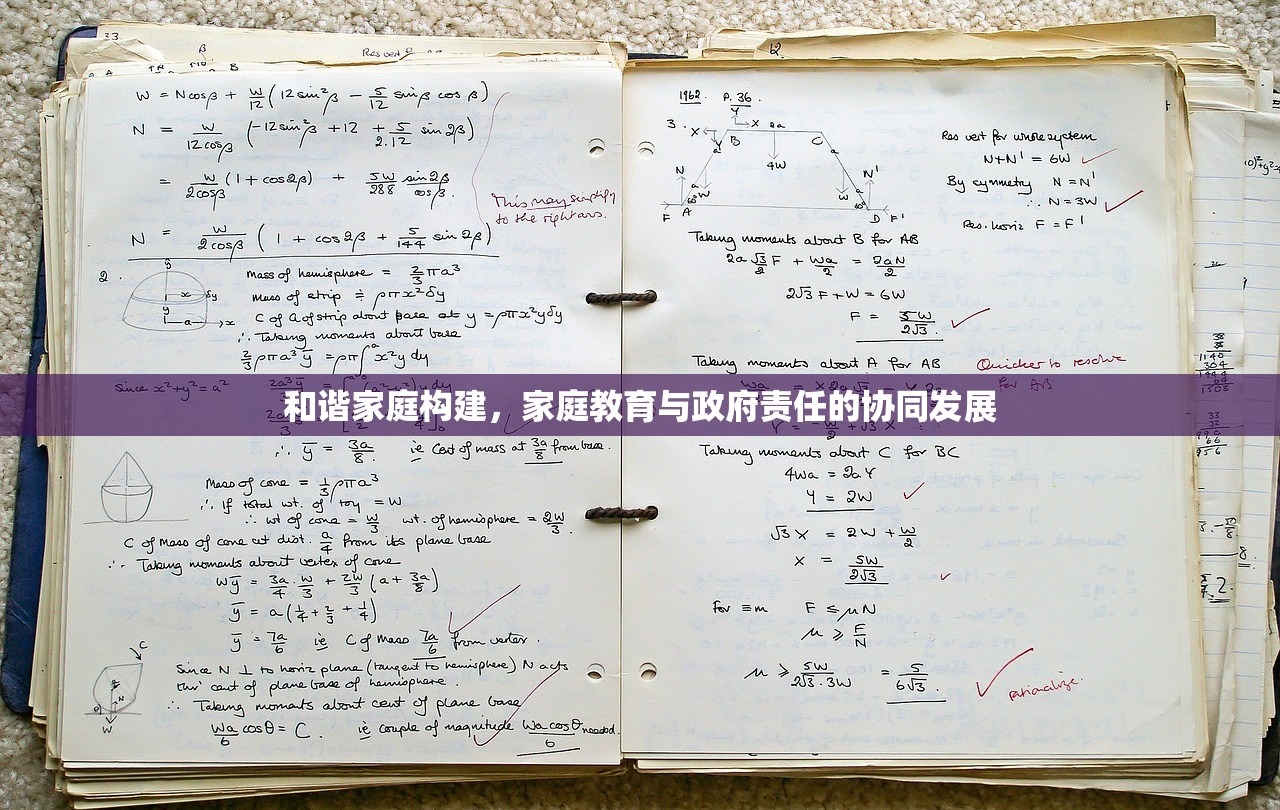 33.
β
Res vert
W = N cosβ + W/12 (12 sin²β − 5/12 sinβ cosβ)
N = W/12cosβ (−12 sin²β + 12 + 5/2.12 sin 2β)
= W/2cosβ (1 + cos2β) + 5W/288 sin2β/cosβ.
This may simplify
to the right ans.
N = W/2cosβ (1 + cos 2β + 5/144 sin 2β)
2.
Mass of hemisphere = 2/3 πa³
Mass of strip ≑ ρπx²δy
C of G of strip about base at y = ρπx²yδy
∴ Taking moments about base
2/3 ρπa³ȳ = ρπ∫ᵃ₀ x²y dy
Since x²+y² = a²
和谐家庭构建，家庭教育与政府责任的协同发展
∴ ȳ = 3a/8 ie Cent of mass at 3a/8 from base.
Mass of cone = 1/3 ρπa³
∴ If total wt. of toy = W
∴ wt of cone = W/3 wt. of hemisphere = 2W/3.
C of Mass of cone at dist. a/4 from its plane base
∴ Taking moments about vertex of cone
Wȳ = 3a/4 · W/3 + 2W/3 (a + 3a/8)
ȳ = a(1/4 + 2/3 + 1/4)
ȳ = 7a/6 ie C of Mass 7a/6 from vertex.
Since N ⊥ to horiz plane (tangent to hemisphere) N acts
thro' cent of plane base of hemisphere.
∴ Taking moments about cent of plane base
Wa/6 cosθ = C. ie couple of magnitude Wa cosθ/6 needed.
12.
1962. P. 36.
3.
X
Y
X
2a
B
C
4W
N
N'
W
W
F
A
D
F'
Res vert for whole system
N+N' = 6W
By symmetry N = N'
∴ N = 3W
Res. horiz F = F'
Taking moments about B for AB
2a √3/2 F + Wa/2 = 2aN/2
2√3 F + W = 6W
F = 5W/2√3.
Taking moments about A for AB
Quicker to resolve
for AB
Taking moments about C for BC
4Wa = 2aY
Y = 2W
√3 X = 2W + W/2
X = 5W/2√3
For ≡m F ≤ μN
μ ≥ F/N
μ ≥ 5W/2√3.3W = 5/6√3.
rationalize.